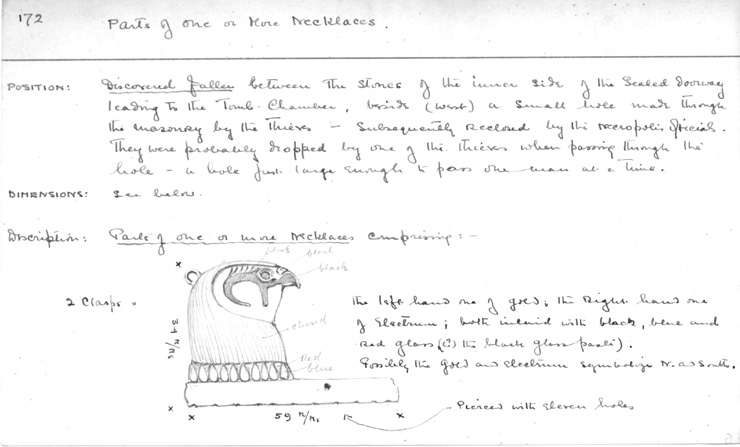 172 Parts of one or More Necklaces.
POSITION: Discovered fallen between the stones of the inner side of the Sealed doorway
leading to the Tomb-Chamber, beside (west) a small hole made through
the masonry by the Thieves – subsequently reclosed by the necropolis officials.
They were probably dropped by one of the thieves when passing through the
hole – a hole just large enough to pass one man at a time.
DIMENSIONS: See below.
Description: Parts of one or more Necklaces comprising:-
black
black
black
2 Clasps =
The left hand one of gold; the Right hand one
of Electrum; both inlaid with black, blue and
red glass (? the black glass paste).
Possibly the gold and electrum symbolize N. and South.
chased
39 m/ms
Red
blue
59 m/ms
Pierced with eleven holes